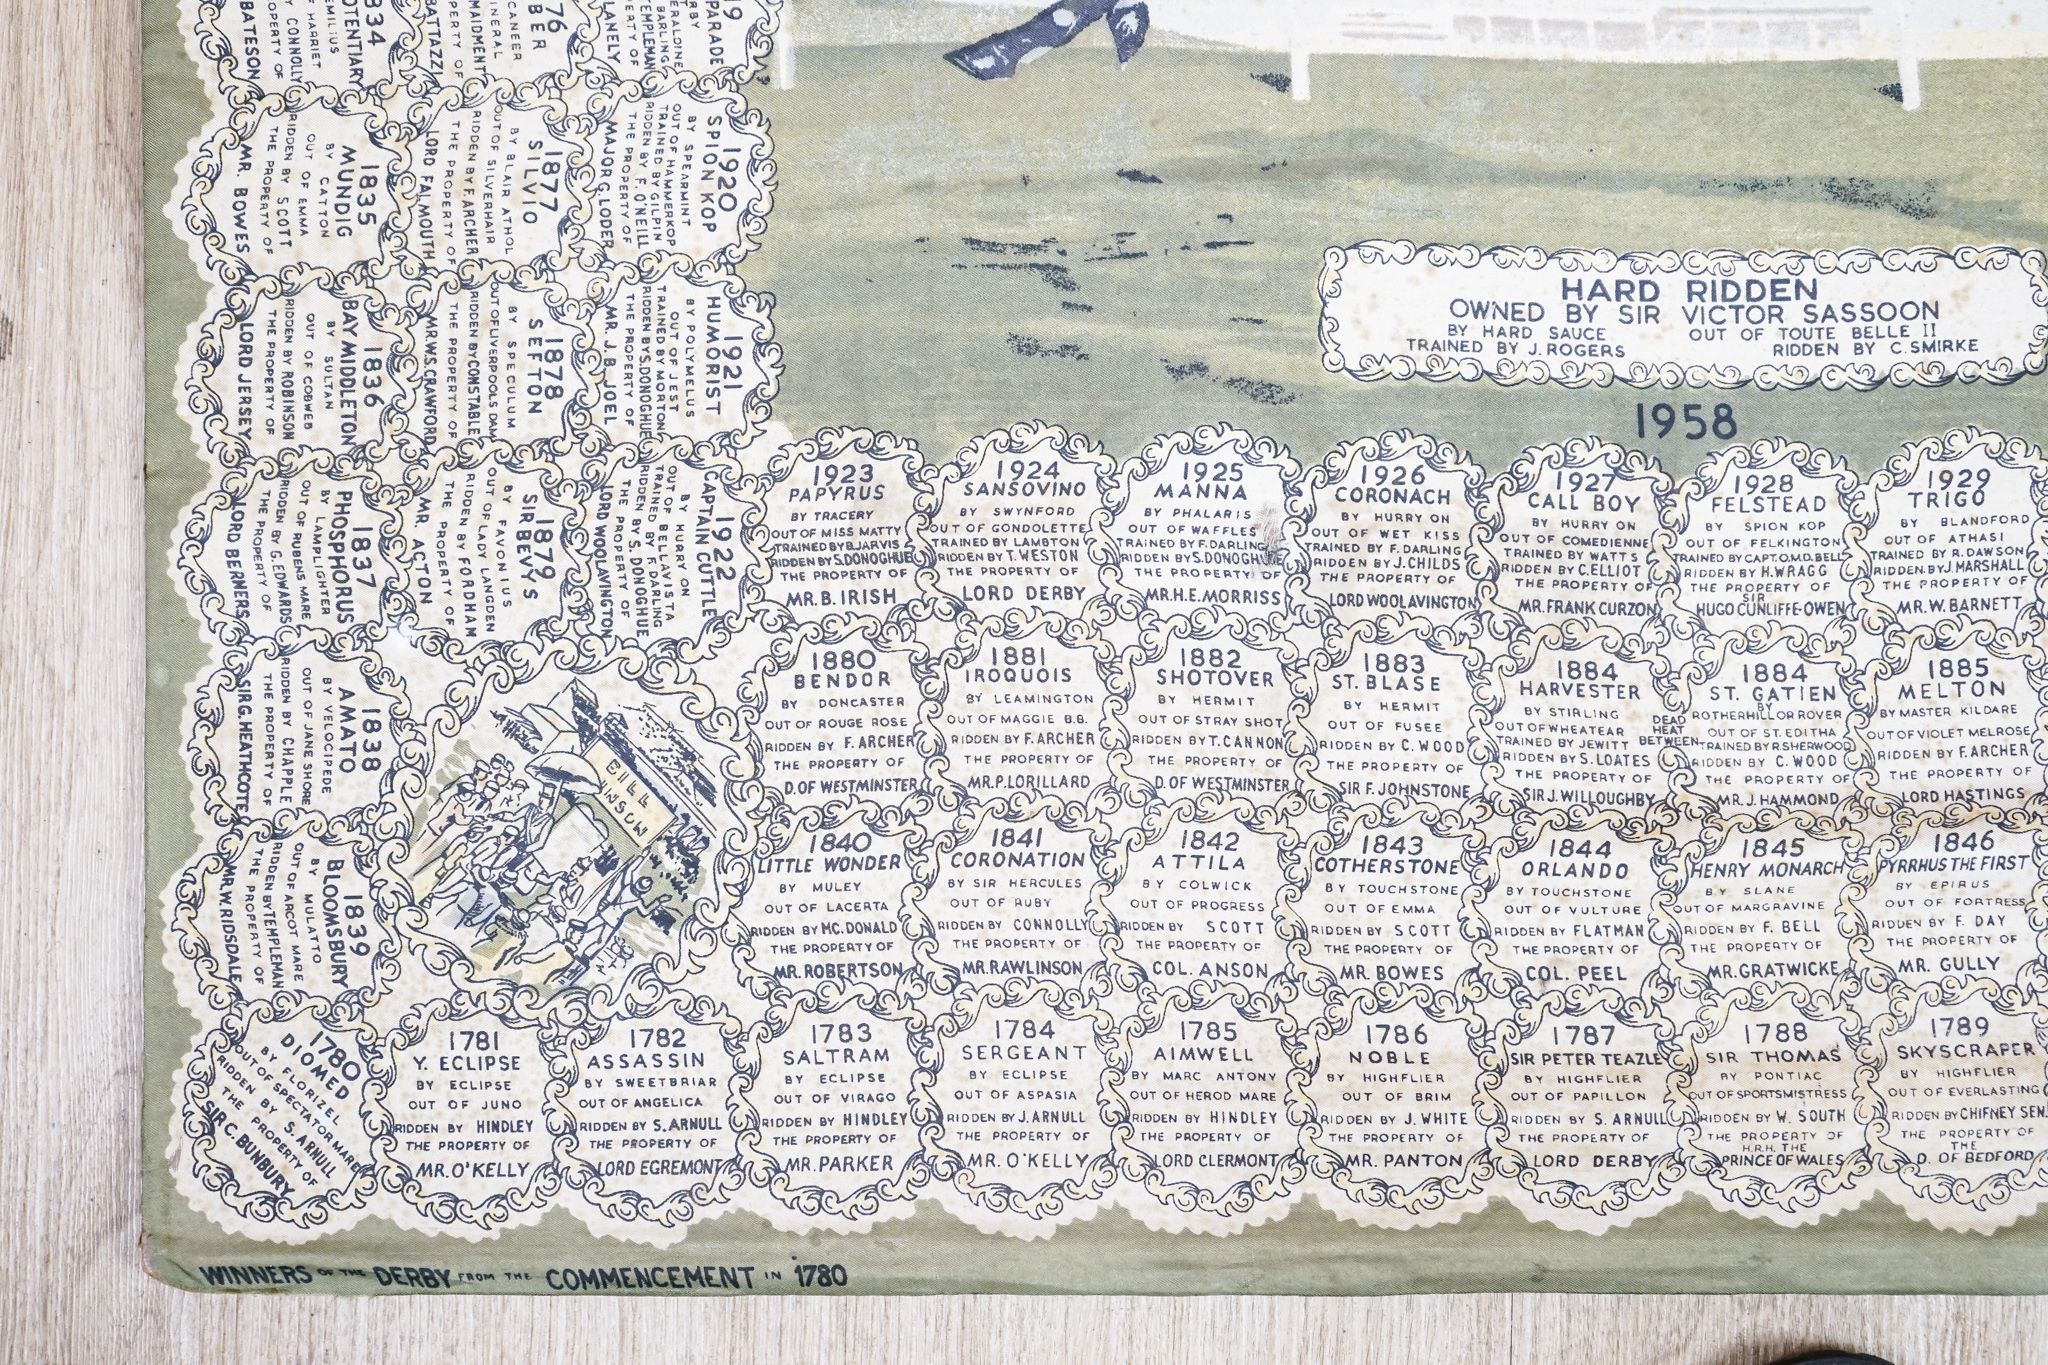 1834
OTENTIARY
EMILIUS
F HARRIET
Y CONNOLLY
OPERTY OF
BATESON
76
BER
CANEER
INERAL
MAIDMENT
PERTY OF
BATTAZZI
19
PARADE
RBY
ERALDINE
BARLING
TEMPLEMAN
ERTY OF
LANELY
1835
MUNDIG
BY CATTON
OUT OF EMMA
RIDDEN BY SCOTT
THE PROPERTY OF
MR. BOWES
1877
SILVIO
BY BLAIR ATHOL
OUT OF SILVERHAIR
RIDDEN BY F. ARCHER
THE PROPERTY OF
LORD FALMOUTH
1920
SPION KOP
BY SPEARMINT
OUT OF HAMMERKOP
TRAINED BY GILPIN
RIDDEN BY F. O'NEILL
THE PROPERTY OF
MAJOR G. LODER
1836
BAY MIDDLETON
BY SULTAN
OUT OF COBWEB
RIDDEN BY ROBINSON
THE PROPERTY OF
LORD JERSEY
1878
SEFTON
BY SPECULUM
OUT OF LIVERPOOLS DAM
RIDDEN BY CONSTABLE
THE PROPERTY OF
MR.W.S.CRAWFORD
1921
HUMORIST
BY POLYMELUS
OUT OF JEST
TRAINED BY MORTON
RIDDEN BY S. DONOGHUE
THE PROPERTY OF
MR. J. B. JOEL
HARD RIDDEN
OWNED BY SIR VICTOR SASSOON
BY HARD SAUCE OUT OF TOUTE BELLE II
TRAINED BY J. ROGERS RIDDEN BY C. SMIRKE
1958
1837
PHOSPHORUS
BY LAMPLIGHTER
OUT OF RUBENS MARE
RIDDEN BY G. EDWARDS
THE PROPERTY OF
LORD BERNERS
1879
SIR BEVYS
BY FAVONIUS
OUT OF LADY LANGDEN
RIDDEN BY FORDHAM
THE PROPERTY OF
MR. ACTON
1922
CAPTAIN CUTTLE
BY HURRY ON
OUT OF BELLAVISTA
TRAINED BY F. DARLING
RIDDEN BY S. DONOGHUE
THE PROPERTY OF
LORD WOOLAVINGTON
1923
PAPYRUS
BY TRACERY
OUT OF MISS MATTY
TRAINED BY B. JARVIS
RIDDEN BY S. DONOGHUE
THE PROPERTY OF
MR. B. IRISH
1924
SANSOVINO
BY SWYNFORD
OUT OF GONDOLETTE
TRAINED BY LAMBTON
RIDDEN BY T. WESTON
THE PROPERTY OF
LORD DERBY
1925
MANNA
BY PHALARIS
OUT OF WAFFLES
TRAINED BY F. DARLING
RIDDEN BY S. DONOGHUE
THE PROPERTY OF
MR. H. E. MORRISS
1926
CORONACH
BY HURRY ON
OUT OF WET KISS
TRAINED BY F. DARLING
RIDDEN BY J. CHILDS
THE PROPERTY OF
LORD WOOLAVINGTON
1927
CALL BOY
BY HURRY ON
OUT OF COMEDIENNE
TRAINED BY WATTS
RIDDEN BY C. ELLIOT
THE PROPERTY OF
MR. FRANK CURZON
1928
FELSTEAD
BY SPION KOP
OUT OF FELKINGTON
TRAINED BY CAPT. O.M.D. BELL
RIDDEN BY H. WRAGG
THE PROPERTY OF
SIR
HUGO CUNLIFFE-OWEN
1929
TRIGO
BY BLANDFORD
OUT OF ATHASI
TRAINED BY R. DAWSON
RIDDEN BY J. MARSHALL
THE PROPERTY OF
MR. W. BARNETT
1838
AMATO
BY VELOCIPEDE
OUT OF JANE SHORE
RIDDEN BY CHAPPLE
THE PROPERTY OF
SIR G. HEATHCOTE
BILL
WINSOW
1880
BENDOR
BY DONCASTER
OUT OF ROUGE ROSE
RIDDEN BY F. ARCHER
THE PROPERTY OF
D. OF WESTMINSTER
1881
IROQUOIS
BY LEAMINGTON
OUT OF MAGGIE B.B.
RIDDEN BY F. ARCHER
THE PROPERTY OF
MR. P. LORILLARD
1882
SHOTOVER
BY HERMIT
OUT OF STRAY SHOT
RIDDEN BY T. CANNON
THE PROPERTY OF
D. OF WESTMINSTER
1883
ST. BLASE
BY HERMIT
OUT OF FUSEE
RIDDEN BY C. WOOD
THE PROPERTY OF
SIR F. JOHNSTONE
1884
HARVESTER
BY STIRLING
OUT OF WHEATEAR
TRAINED BY JEWITT
RIDDEN BY S. LOATES
THE PROPERTY OF
SIR J. WILLOUGHBY
DEAD
HEAT
BETWEEN
1884
ST. GATIEN
BY
ROTHERHILL OR ROVER
OUT OF ST. EDITHA
TRAINED BY R. SHERWOOD
RIDDEN BY C. WOOD
THE PROPERTY OF
MR. J. HAMMOND
1885
MELTON
BY MASTER KILDARE
OUT OF VIOLET MELROSE
RIDDEN BY F. ARCHER
THE PROPERTY OF
LORD HASTINGS
1839
BLOOMSBURY
BY MULATTO
OUT OF ARCOT MARE
RIDDEN BY TEMPLEMAN
THE PROPERTY OF
MR. W. RIDSDALE
1840
LITTLE WONDER
BY MULEY
OUT OF LACERTA
RIDDEN BY MC. DONALD
THE PROPERTY OF
MR. ROBERTSON
1841
CORONATION
BY SIR HERCULES
OUT OF RUBY
RIDDEN BY CONNOLLY
THE PROPERTY OF
MR. RAWLINSON
1842
ATTILA
BY COLWICK
OUT OF PROGRESS
RIDDEN BY SCOTT
THE PROPERTY OF
COL. ANSON
1843
COTHERSTONE
BY TOUCHSTONE
OUT OF EMMA
RIDDEN BY SCOTT
THE PROPERTY OF
MR. BOWES
1844
ORLANDO
BY TOUCHSTONE
OUT OF VULTURE
RIDDEN BY FLATMAN
THE PROPERTY OF
COL. PEEL
1845
HENRY MONARCH
BY SLANE
OUT OF MARGRAVINE
RIDDEN BY F. BELL
THE PROPERTY OF
MR. GRATWICKE
1846
PYRRHUS THE FIRST
BY EPIRUS
OUT OF FORTRESS
RIDDEN BY F. DAY
THE PROPERTY OF
MR. GULLY
1780
DIOMED
BY FLORIZEL
OUT OF SPECTATOR MARE
RIDDEN BY S. ARNULL
THE PROPERTY OF
SIR C. BUNBURY
1781
Y. ECLIPSE
BY ECLIPSE
OUT OF JUNO
RIDDEN BY HINDLEY
THE PROPERTY OF
MR. O'KELLY
1782
ASSASSIN
BY SWEETBRIAR
OUT OF ANGELICA
RIDDEN BY S. ARNULL
THE PROPERTY OF
LORD EGREMONT
1783
SALTRAM
BY ECLIPSE
OUT OF VIRAGO
RIDDEN BY HINDLEY
THE PROPERTY OF
MR. PARKER
1784
SERGEANT
BY ECLIPSE
OUT OF ASPASIA
RIDDEN BY J. ARNULL
THE PROPERTY OF
MR. O'KELLY
1785
AIMWELL
BY MARC ANTONY
OUT OF HEROD MARE
RIDDEN BY HINDLEY
THE PROPERTY OF
LORD CLERMONT
1786
NOBLE
BY HIGHFLIER
OUT OF BRIM
RIDDEN BY J. WHITE
THE PROPERTY OF
MR. PANTON
1787
SIR PETER TEAZLE
BY HIGHFLIER
OUT OF PAPILLON
RIDDEN BY S. ARNULL
THE PROPERTY OF
LORD DERBY
1788
SIR THOMAS
BY PONTIAC
OUT OF SPORTSMISTRESS
RIDDEN BY W. SOUTH
THE PROPERTY OF
H.R.H. THE
PRINCE OF WALES
1789
SKYSCRAPER
BY HIGHFLIER
OUT OF EVERLASTING
RIDDEN BY CHIFNEY SEN.
THE PROPERTY OF
THE
D. OF BEDFORD
WINNERS OF THE DERBY FROM THE COMMENCEMENT IN 1780